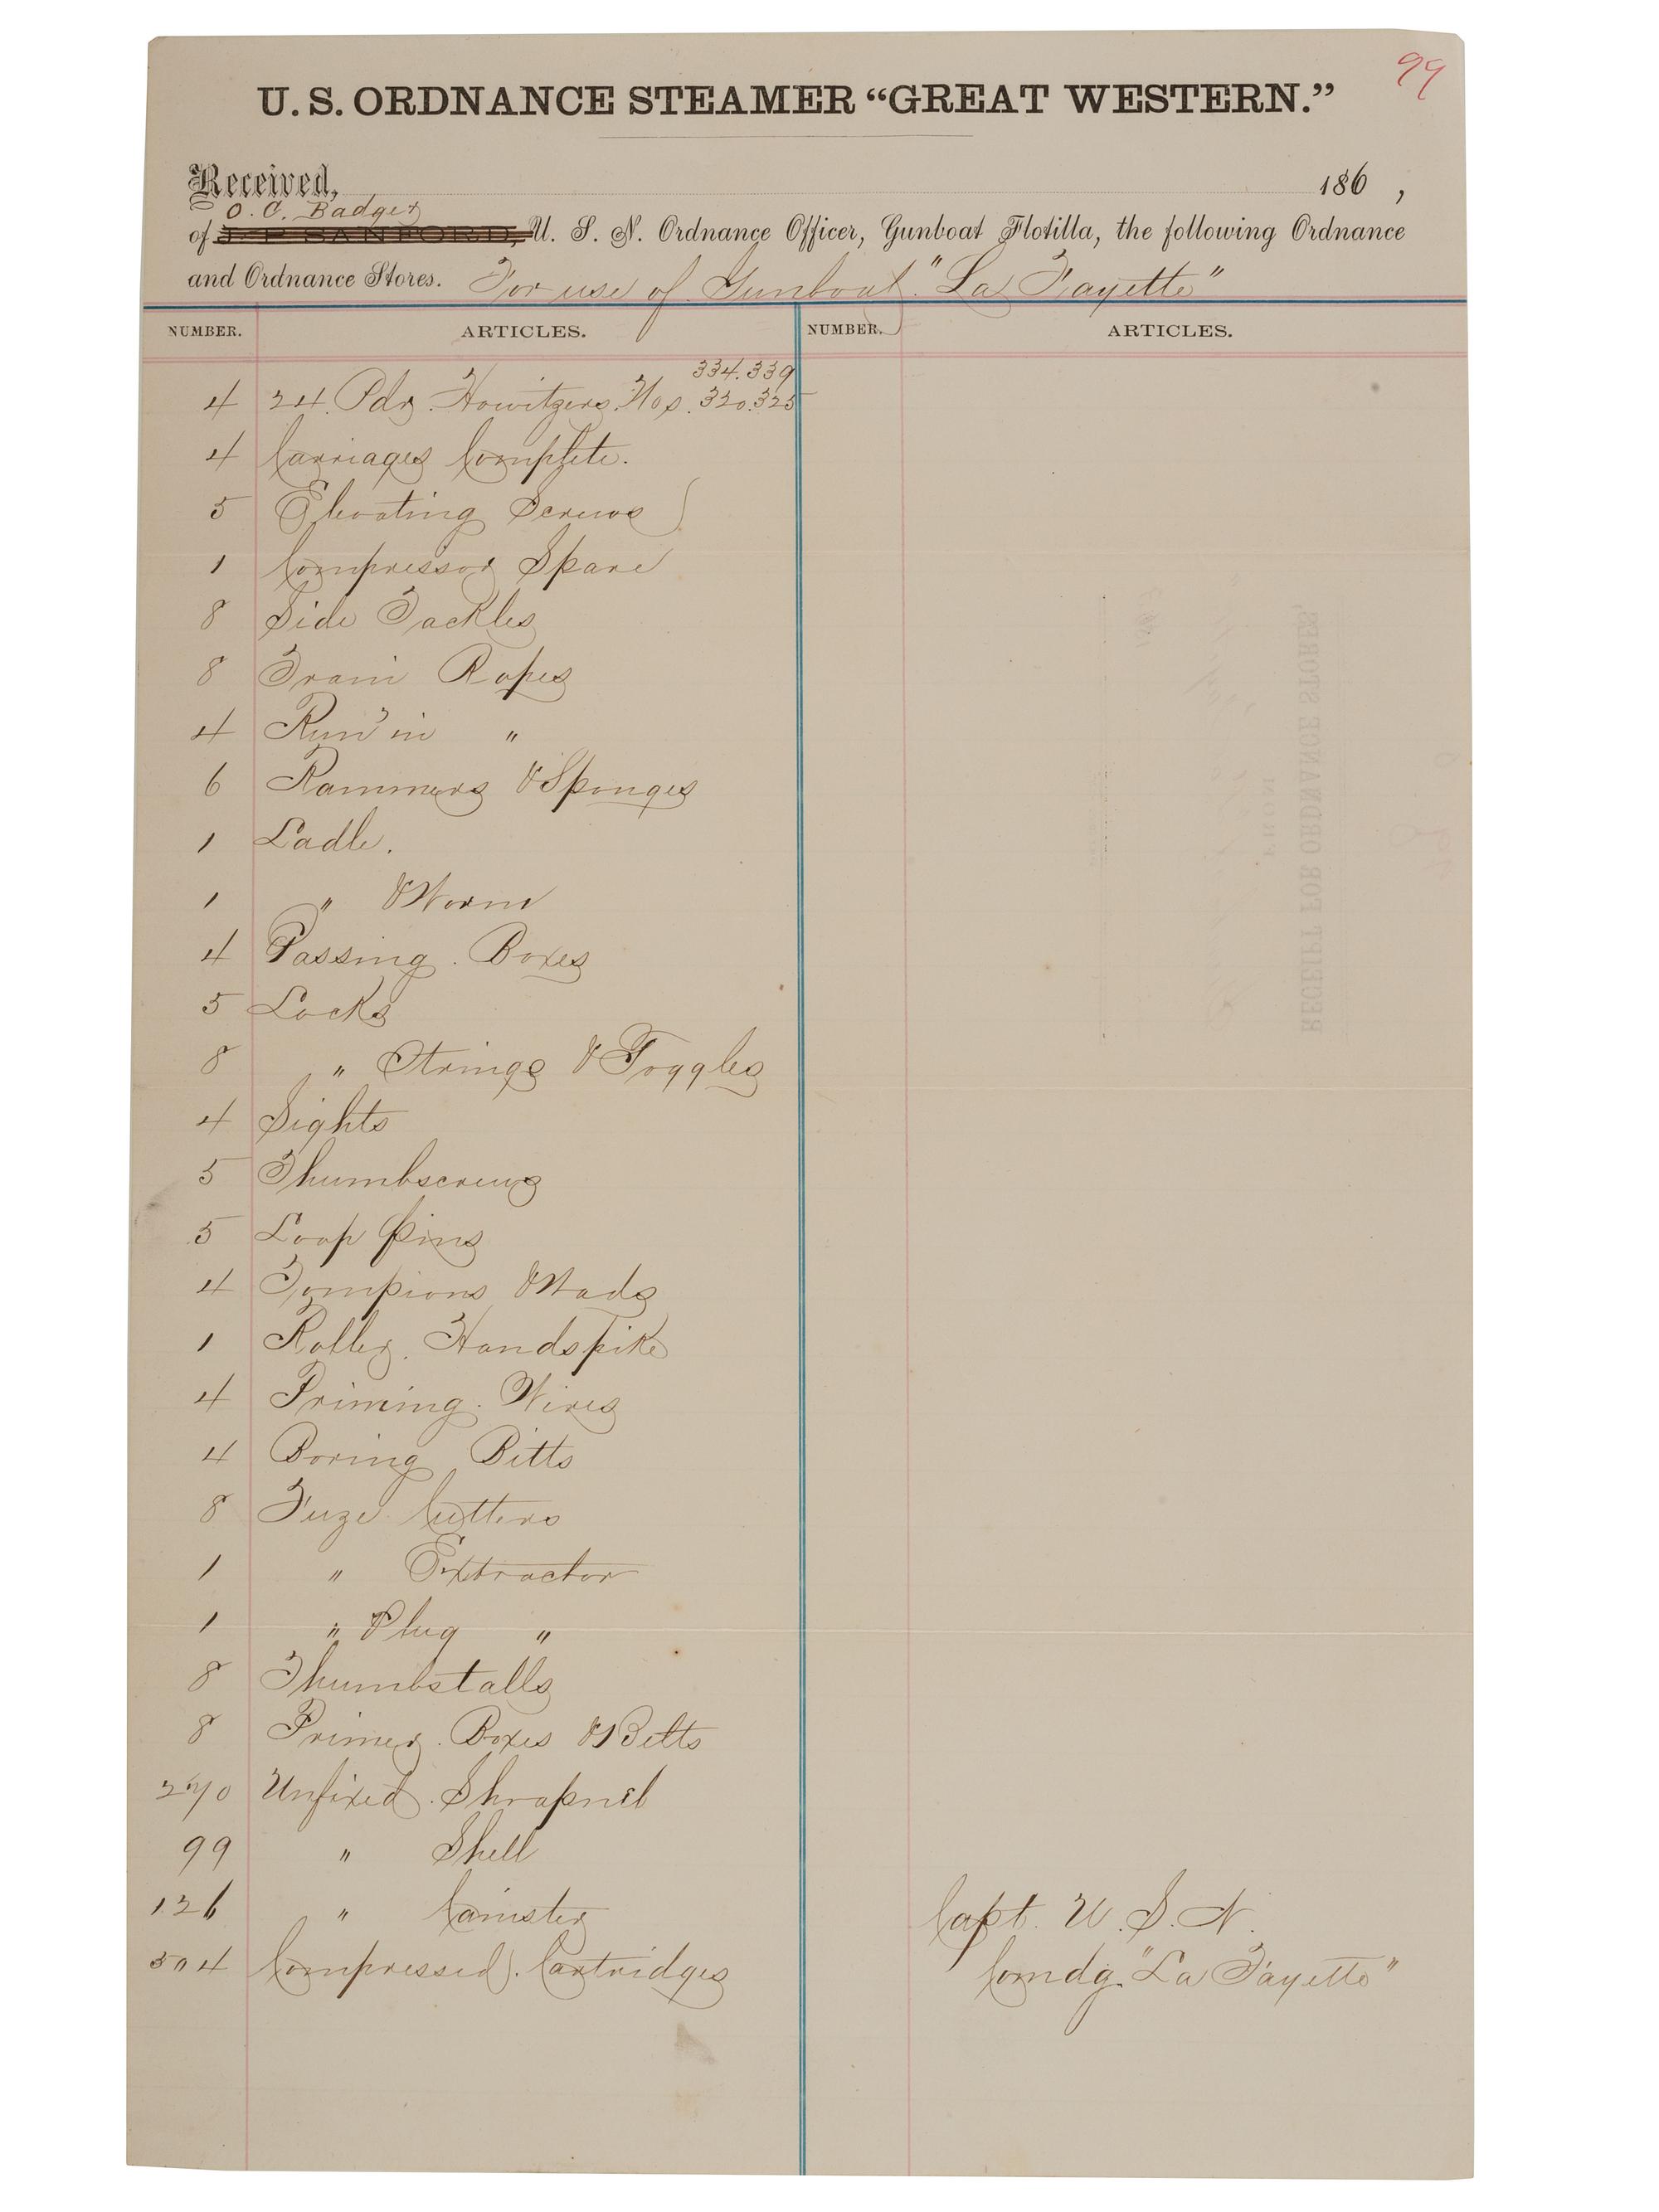 99
U. S. ORDNANCE STEAMER “GREAT WESTERN.”
Received, 186 ,
O. C. Badger
of J. P. SANFORD, U. S. N. Ordnance Officer, Gunboat Flotilla, the following Ordnance
and Ordnance Stores. For use of Gunboat "La Fayette"
NUMBER. ARTICLES. NUMBER. ARTICLES.
334. 339
4 24. Pdr. Howitzers. Nos. 320. 325
4 Carriages Complete.
5 Elevating Screws
1 Compressor Spare
8 Side Tackles
8 Train Ropes
4 Run in "
6 Rammers & Sponges
1 Ladle.
1 " & Worm
4 Passing. Boxes
5 Locks
8 " Strings & Toggles
4 Sights
5 Thumbscrews
5 Loop Pins
4 Tompions & Wads
1 Roller. Handspike
4 Priming. Wires
4 Boring Bitts
8 Fuze Cutters
1 " Extractor
1 " Plug "
8 Thumbstalls
8 Primer. Boxes & Belts
270 Unfixed. Shrapnel
99 " Shell
126 " Canister
504 Compressed. Cartridges
Capt. U. S. N.
Comdg. "La Fayette"
RECEIPT FOR ORDNANCE STORES,
FROM